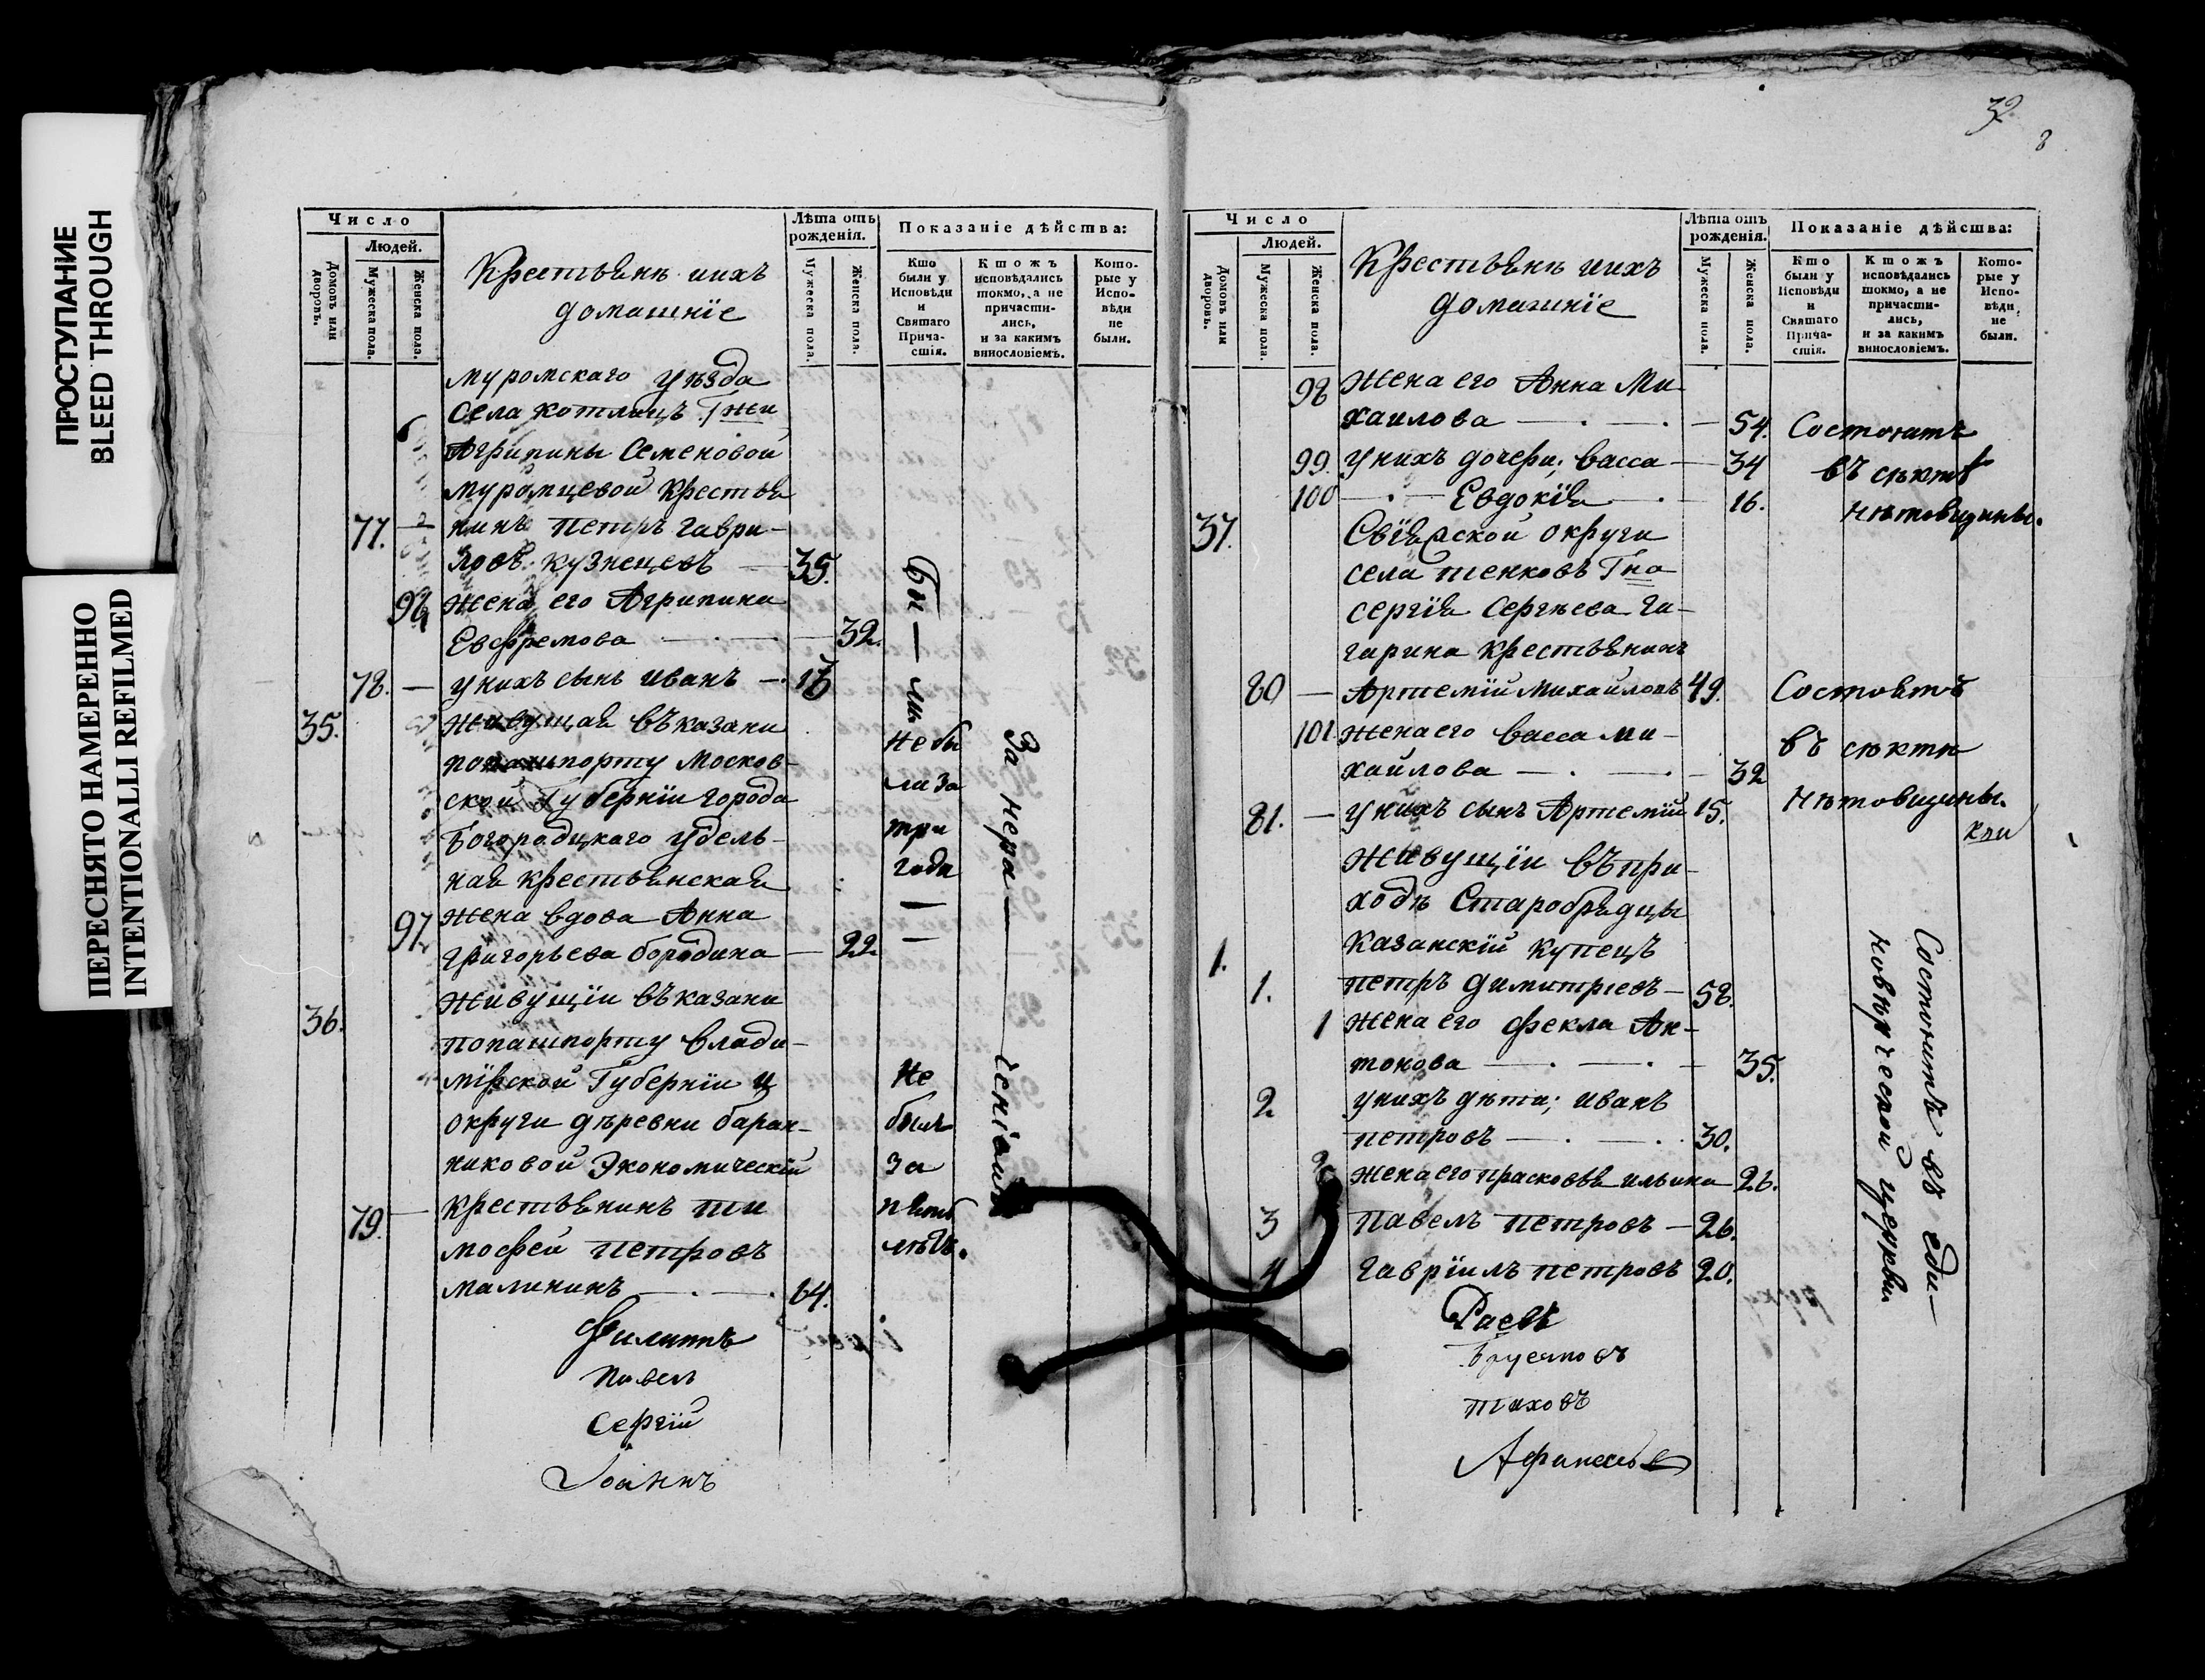 ПРОСТУПАНИЕ
BLEED THROUGH
ПЕРЕСНЯТО НАМЕРЕННО
INTENTIONALLI REFILMED
Число
Людей.
Домовъ или дворовъ.
Мужеска пола.
Женска пола.
Крестьянѣ и ихъ
домашніе
Лѣта отъ рожденія.
Мужеска пола.
Женска пола.
Показаніе дѣйства:
Кто были у Исповѣди и Святаго Причастія.
Кто жъ исповѣдались токмо, а не причастились, и за какимъ винословіемъ.
Которые у Исповѣди не были.
муромскаго уѣзда
села котлицъ Гжи
Агрипины Семеновой
муромцевой крестья
77. — нинъ петръ гаври-
ловъ кузнецевъ — 35.
Бы — ли
96 жена его Агрипина
Евфремова — 32.
78. — у нихъ сынъ иванъ — 13
35. живущая въ казани
по пашпорту москов-
ской Губерніи города
Богородицкаго удель-
ная крестьянская
97. жена вдова Анна
григорьева бородина — 22
не бы
ли за
три
года
За нера — ченіемъ
36. живущіи въ казани
по пашпорту влади-
мірской Губерніи и
округи деревни баран-
никовой Экономическій
79. — крестьянинъ ти
мофеи петровъ
малининъ — 64.
не
былъ
за
пять
лѣтъ.
Филиппъ
Павелъ
Сергій
Іоаннъ
32
8
Число
Людей.
Домовъ или дворовъ.
Мужеска пола.
Женска пола.
Крестьянѣ и ихъ
домашніе
Лѣта отъ рожденія.
Мужеска пола.
Женска пола.
Показаніе дѣйства:
Кто были у Исповѣди и Святаго Причастія.
Кто жъ исповѣдались токмо, а не причастились, и за какимъ винословіемъ.
Которые у Исповѣди не были.
98 жена его Анна Ми
хаилова — 54.
99. у нихъ дочери; васса — 34
100 — Евдокія — 16.
Состоятъ
въ сектѣ
нѣтовщины.
37. Свіяской округи
села тенковъ Гна
сергія Сергѣева Га-
гарина крестьянинъ
80 — Артемій Михайловъ 49.
101. жена его васса ми-
хайлова — 32
81. — у нихъ сынъ Артемій 15.
Состоятъ
въ сектѣ
нѣтовщины.
живущіи въ при-
ходѣ Старобрядцы
1. казанскій купецъ
1. петръ димитріевъ — 58.
1 жена его фекла Ан-
тонова — 35.
2 у нихъ дѣти; иванъ
петровъ — 30.
2 жена его прасковья ильина 26.
3 павелъ петровъ — 26.
4 гавріилъ петровъ 20.
Состоитъ въ еди-
новѣрческой церкви
Раевъ
тиховъ